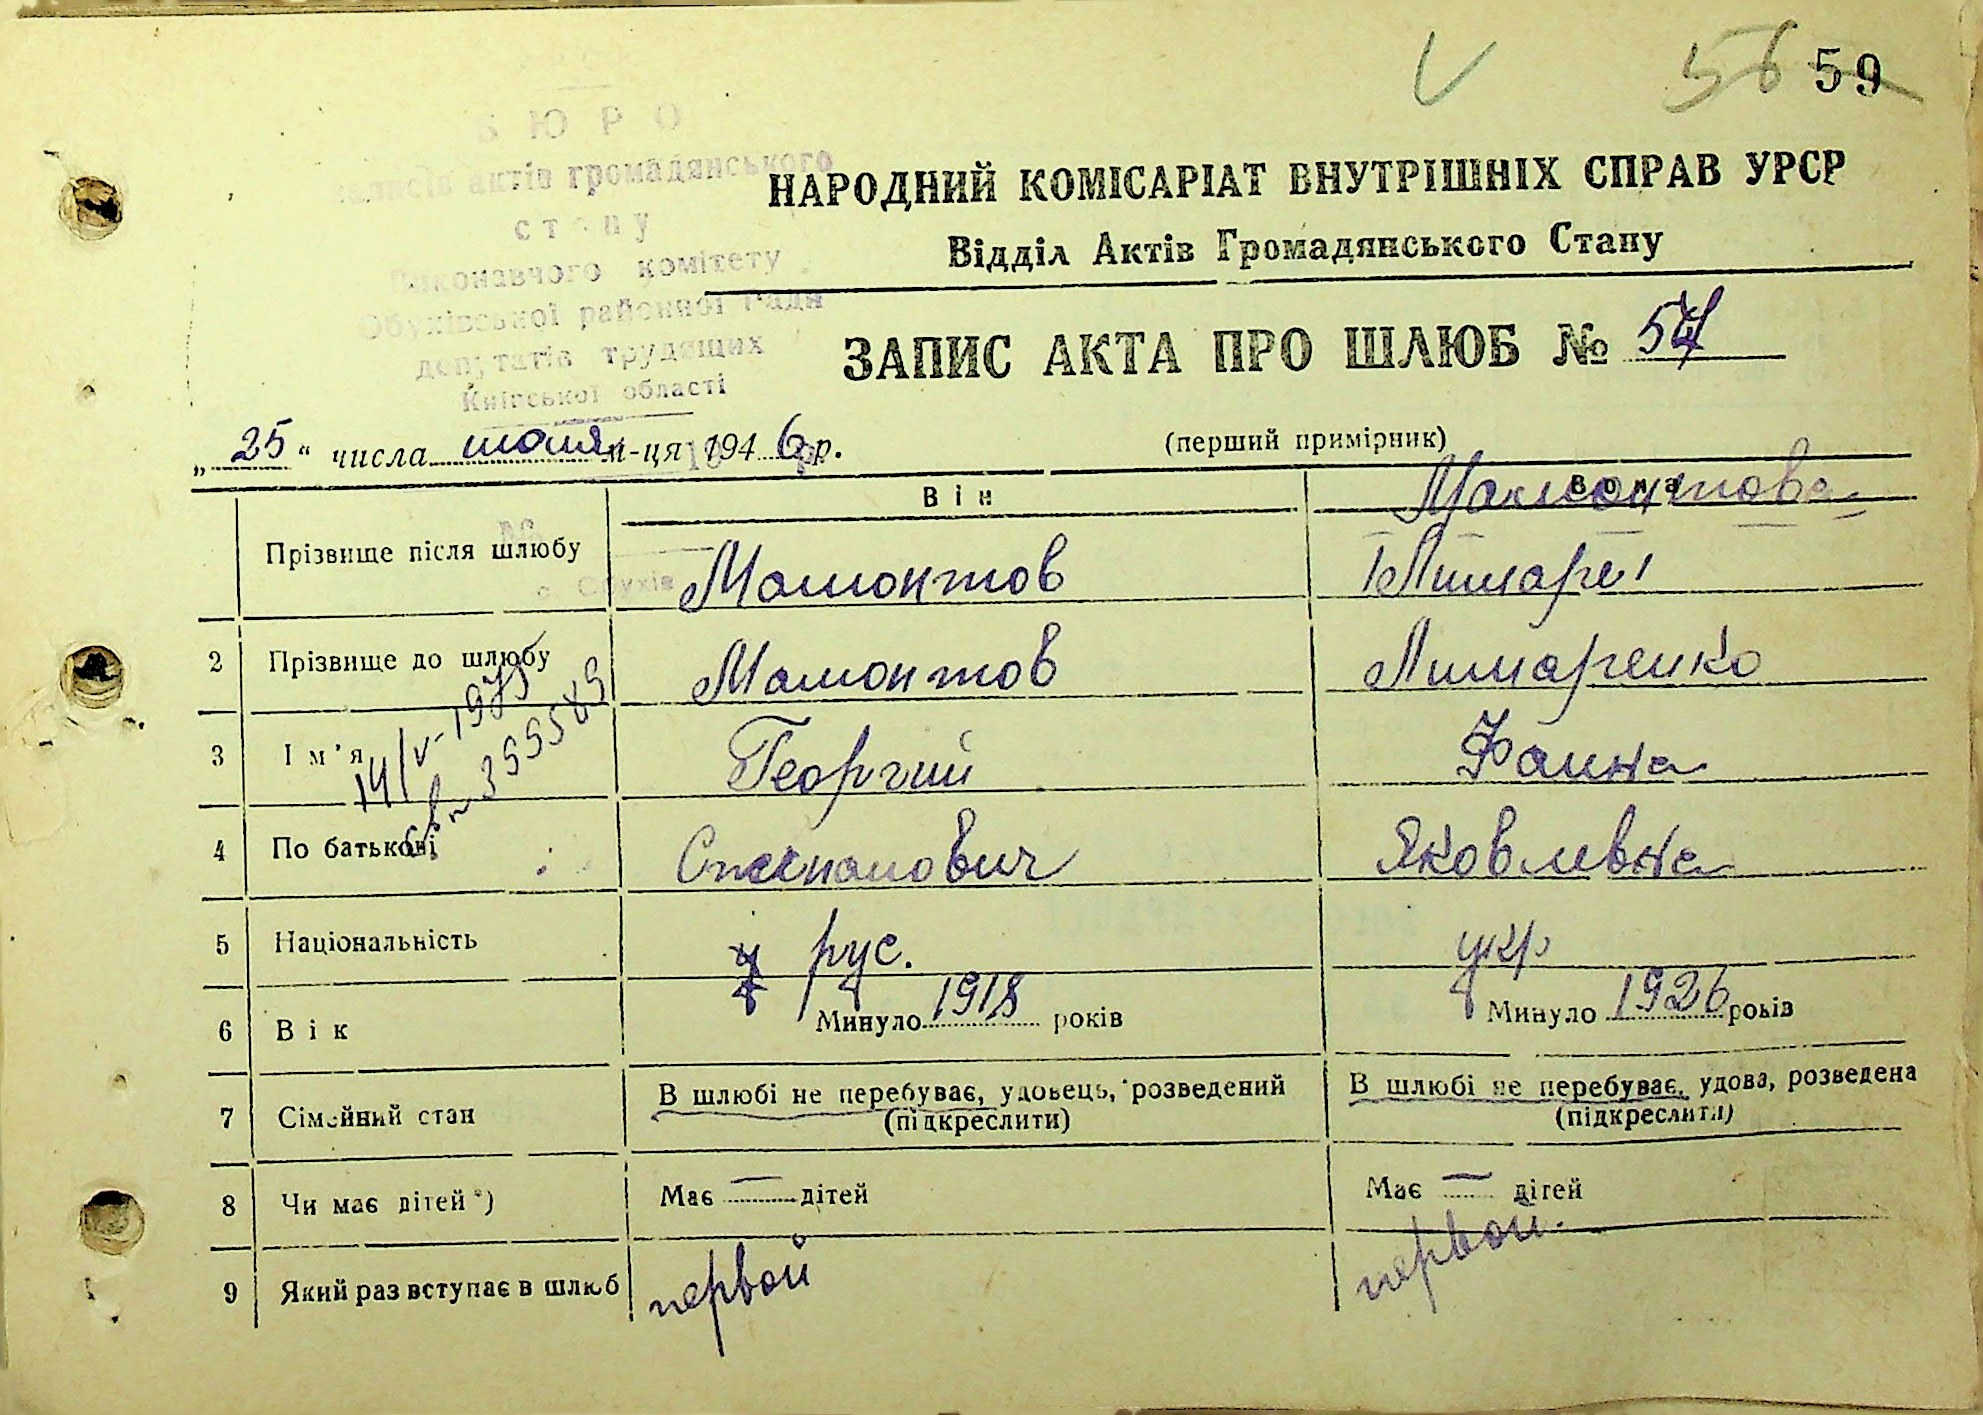 56 59
БЮРО
записів актів громадянського
стану
Виконавчого комітету
Обухівської районної Ради
депутатів трудящих
Київської області
НАРОДНИЙ КОМІСАРІАТ ВНУТРІШНІХ СПРАВ УРСР
Відділ Актів Громадянського Стану
ЗАПИС АКТА ПРО ШЛЮБ № 57
„25“ числа июля м-ця 1946 р.
(перший примірник)
Він Вона
Мамонтова
Прізвище після шлюбу Мамонтов
2 Прізвище до шлюбу Мамонтов Лимаренко
3 Ім'я Георгий Фаина
14/V-1975
3555589
4 По батькові Степанович Яковлевна
5 Національність рус. укр
6 Вік Минуло 1918 років Минуло 1926 років
7 Сімейний стан В шлюбі не перебуває, удовець, розведений В шлюбі не перебуває, удова, розведена
(підкреслити) (підкреслити)
8 Чи має дітей*) Має — дітей Має — дітей
9 Який раз вступає в шлюб первой первой.